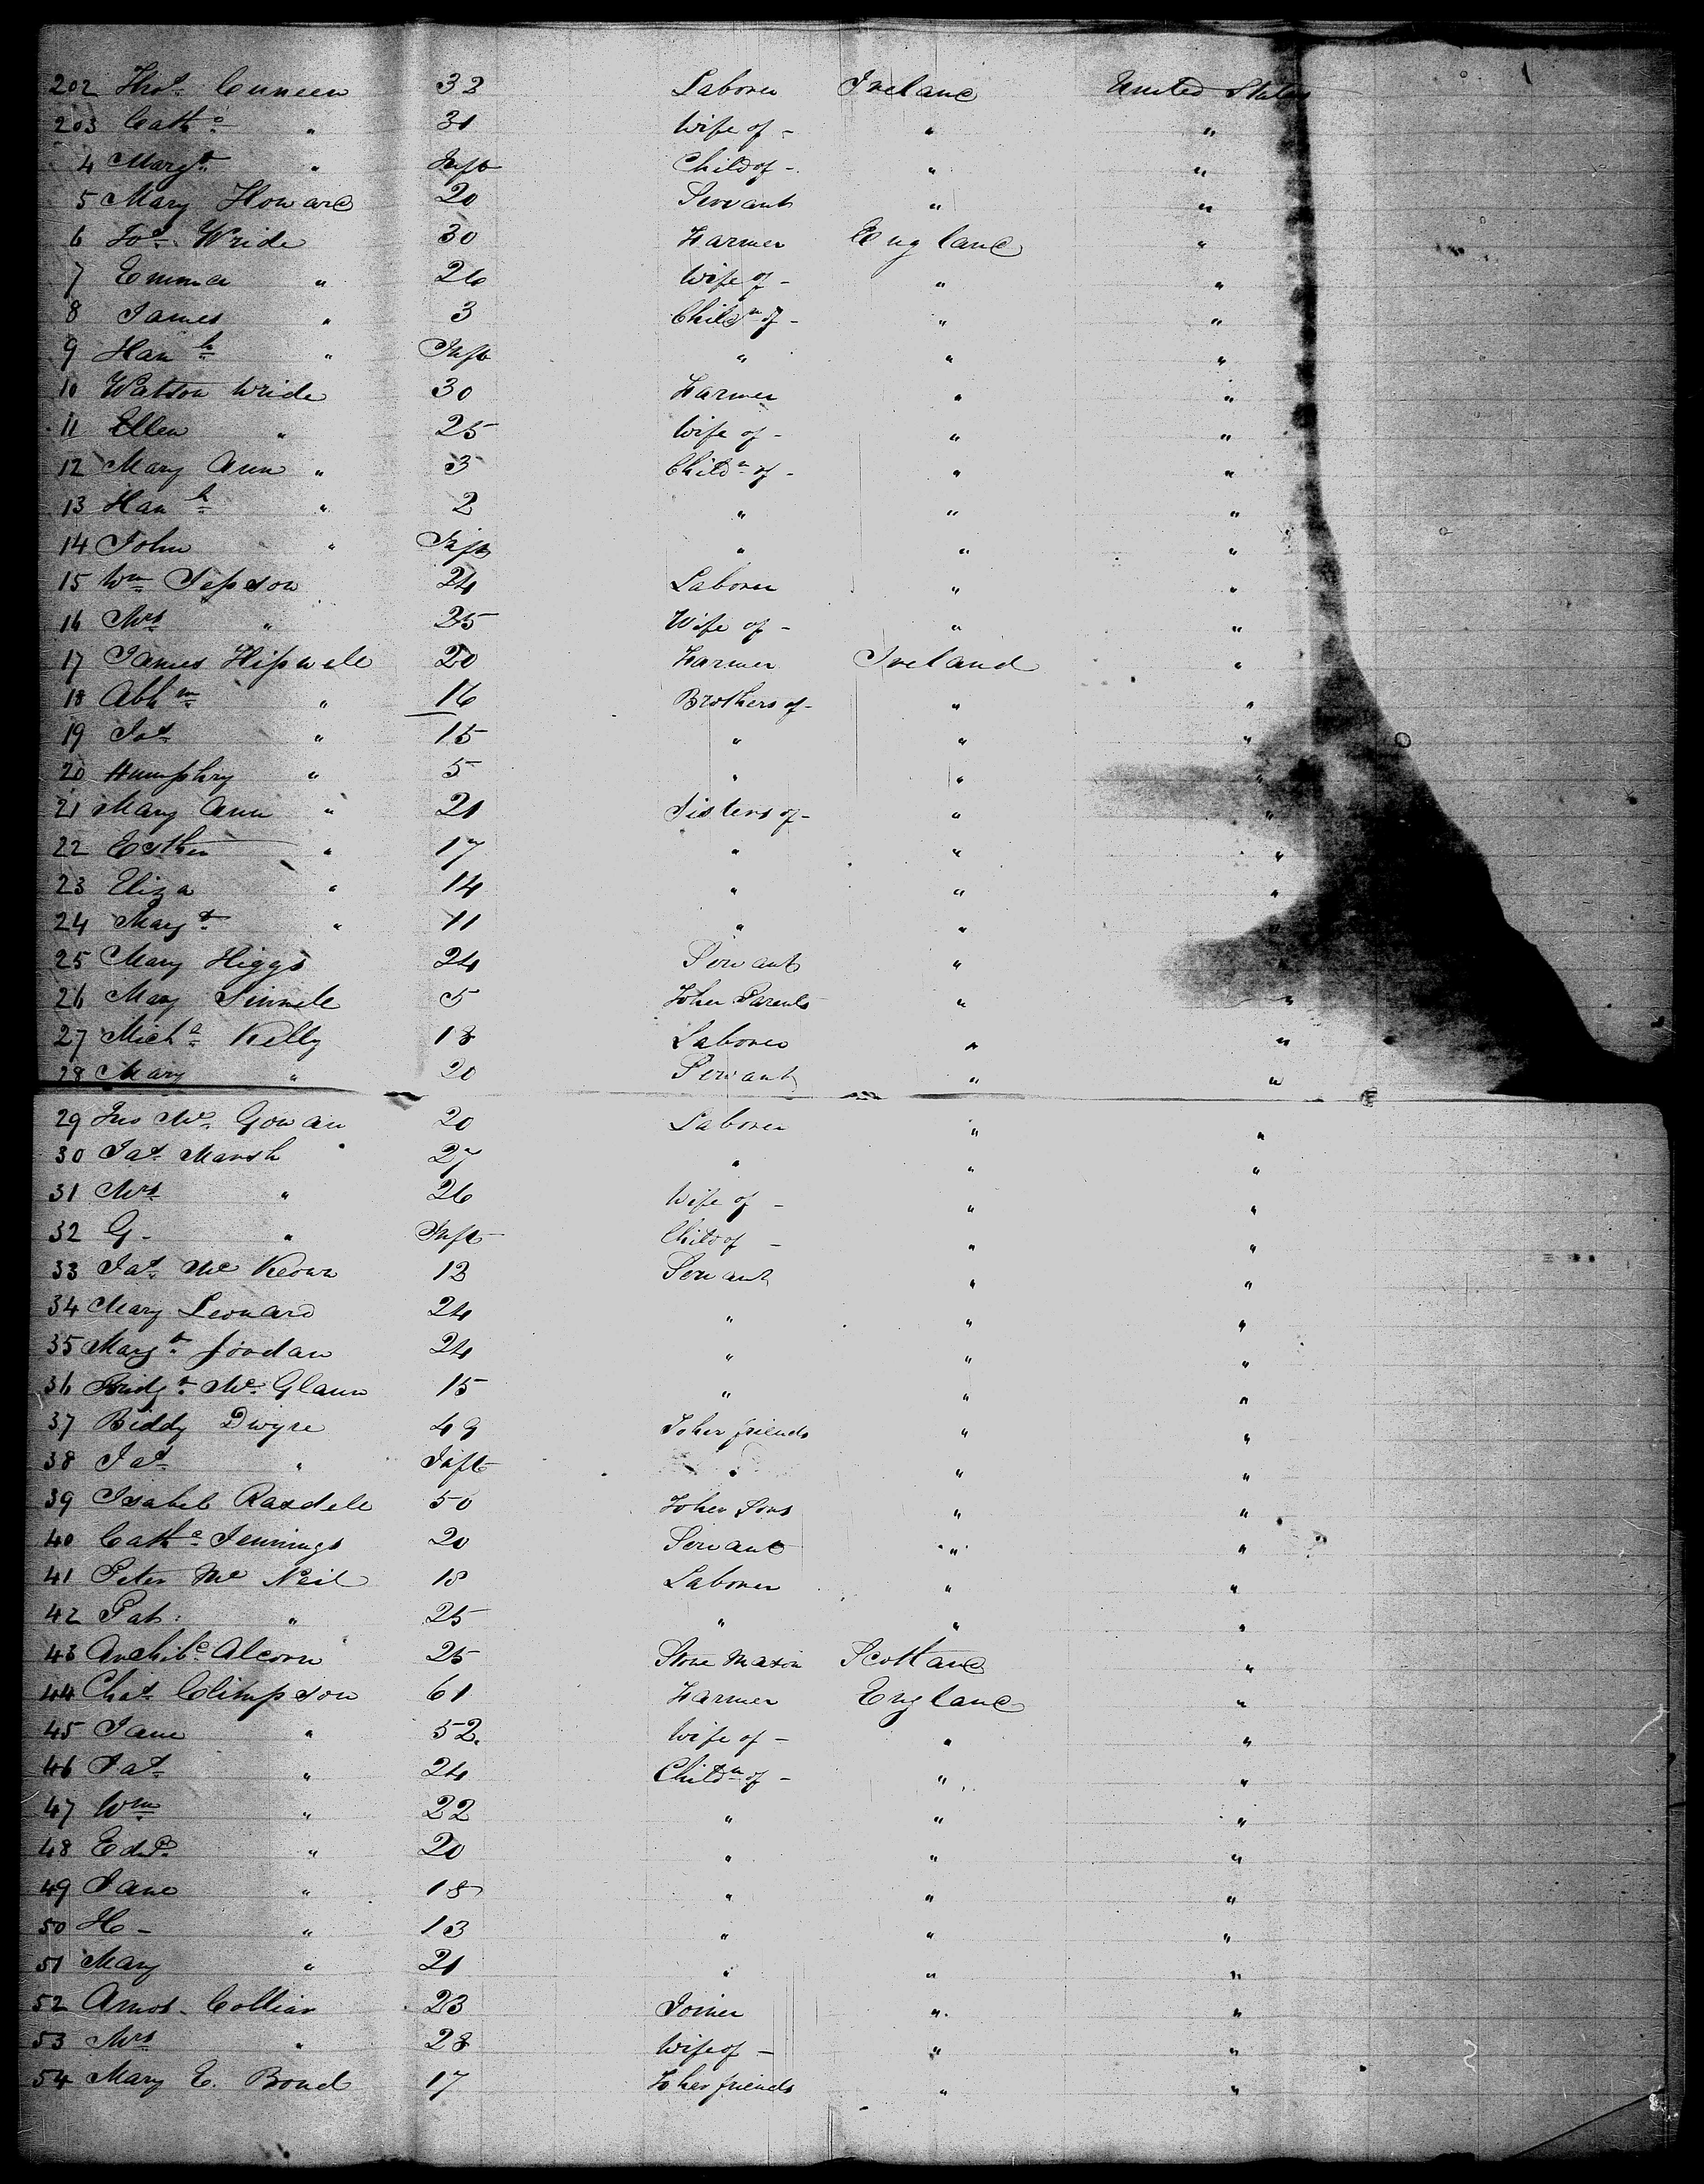 202 Thos. Cuneen 32 Laborer Ireland United States
203 Cathe " 31 Wife of - " "
4 Margt " Inft Child of - " "
5 Mary Howard 20 Servant " "
6 Jos. Wride 30 Farmer England "
7 Emma " 26 Wife of - " "
8 James " 3 Childn of - " "
9 Hanh " Inft " " "
10 Watson Wride 30 Farmer " "
11 Ellen " 25 Wife of - " "
12 Mary Ann " 3 Childn of - " "
13 Hanh " 2 " " "
14 John " Inft " " "
15 Wm Jepson 24 Laborer " "
16 Mrs " 25 Wife of - " "
17 James Hipwell 20 Farmer Ireland "
18 Abhm " 16 Brothers of - " "
19 Jos " 15 " " "
20 Humphry " 5 " " "
21 Mary Ann " 21 Sisters of - " "
22 Esther " 17 " " "
23 Eliza " 14 " " "
24 Margt " 11 " "
25 Mary Higgs 24 Servant "
26 Mary 5 To her Parents " "
27 Michl Kelly 18 Laborer " "
28 Mary " 20 Servant " "
29 Jno Mc Gowan 20 Laborer " "
30 Jas Marsh 27 " " "
31 Mrs " 26 Wife of - " "
32 G. " Inft Child of - " "
33 Jas Mc Keown 13 Servant " "
34 Mary Leonard 24 " " "
35 Margt Jordan 24 " " "
36 Bridgt Mc Glann 15 " " "
37 Biddy Dwyre 49 To her friends " "
38 Jas " Inft " " "
39 Isabel Rasdell 50 To her Sons " "
40 Cathe Jennings 20 Servant " "
41 Peter Mc Neil 18 Laborer " "
42 Pat: " 25 " " "
43 Archibd Alcorn 25 Stone Mason Scotland "
44 Chas Climpson 61 Farmer England "
45 Jane " 52 Wife of - " "
46 Jas " 24 Childn of - " "
47 Wm " 22 " " "
48 Edwd " 20 " " "
49 Jane " 18 " " "
50 H - " 13 " " "
51 Mary " 21 " " "
52 Amos Collier 23 Joiner " "
53 Mrs " 28 Wife of - " "
54 Mary E. Bond 17 To her friends " "